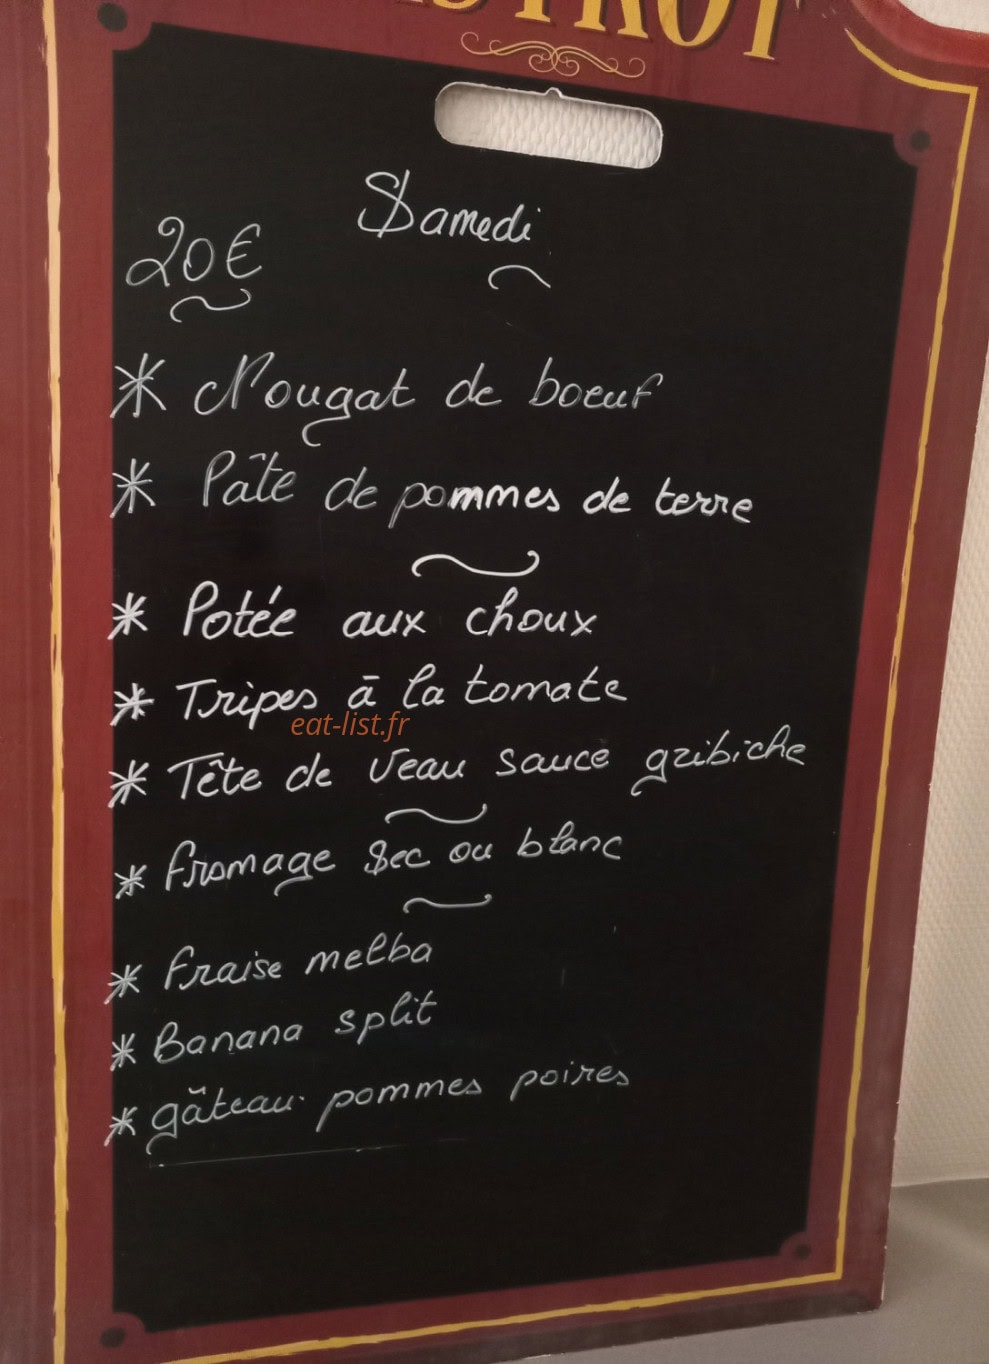 BISTROT
Samedi
20€
* Nougat de boeuf
* Pâte de pommes de terre
* Potée aux choux
* Tripes à la tomate
eat-list.fr
* Tête de veau sauce gribiche
* Fromage sec ou blanc
* Fraise melba
* Banana split
* gâteau pommes poires